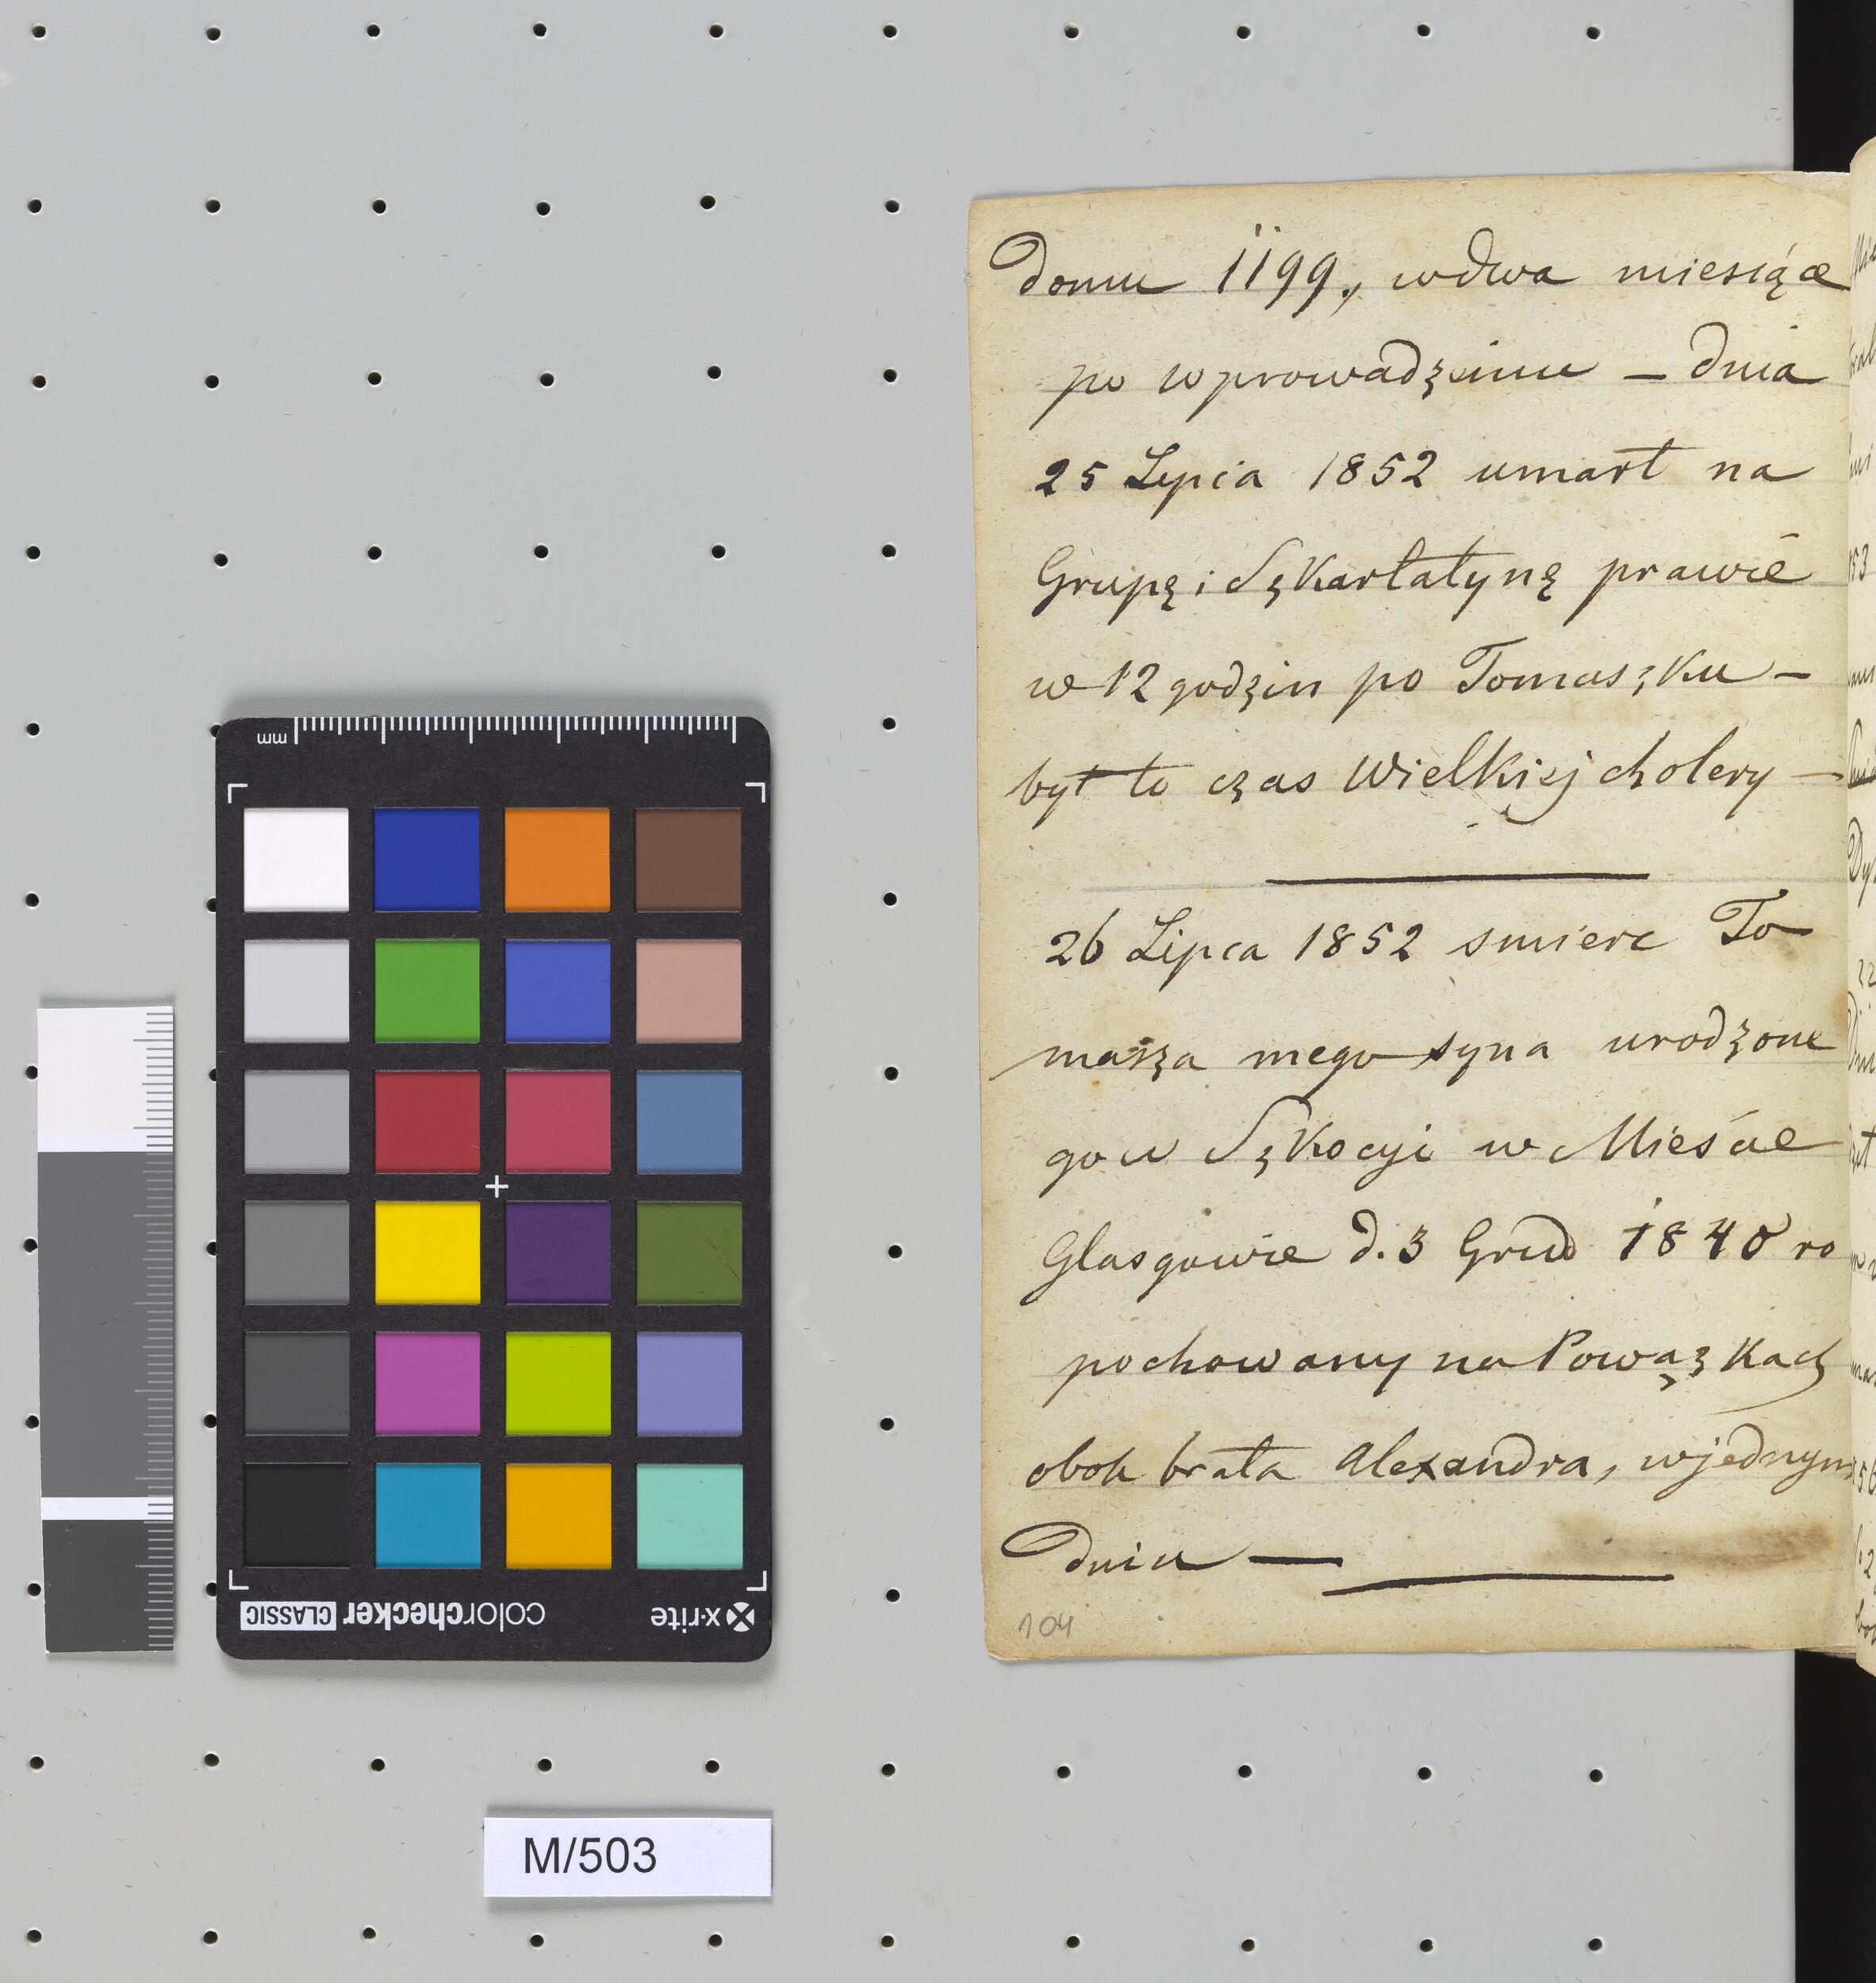 domu 1199., wdwa miesiące
po wprowadzeniu – dnia
25 Lipca 1852 umarł na
Grupę i Szkarlatynę prawie
w 12 godzin po Tomaszku –
był to czas Wielkiej cholery –
26 Lipca 1852 smierc To
masza mego syna urodzone
go w Szkocyi w Mieście
Glasgowie d. 3 Grud 1840 ro
pochowany na Powązkach
obok brata Alexandra, wjednym
Dniu —
104
mm
x·rite colorchecker CLASSIC
M/503